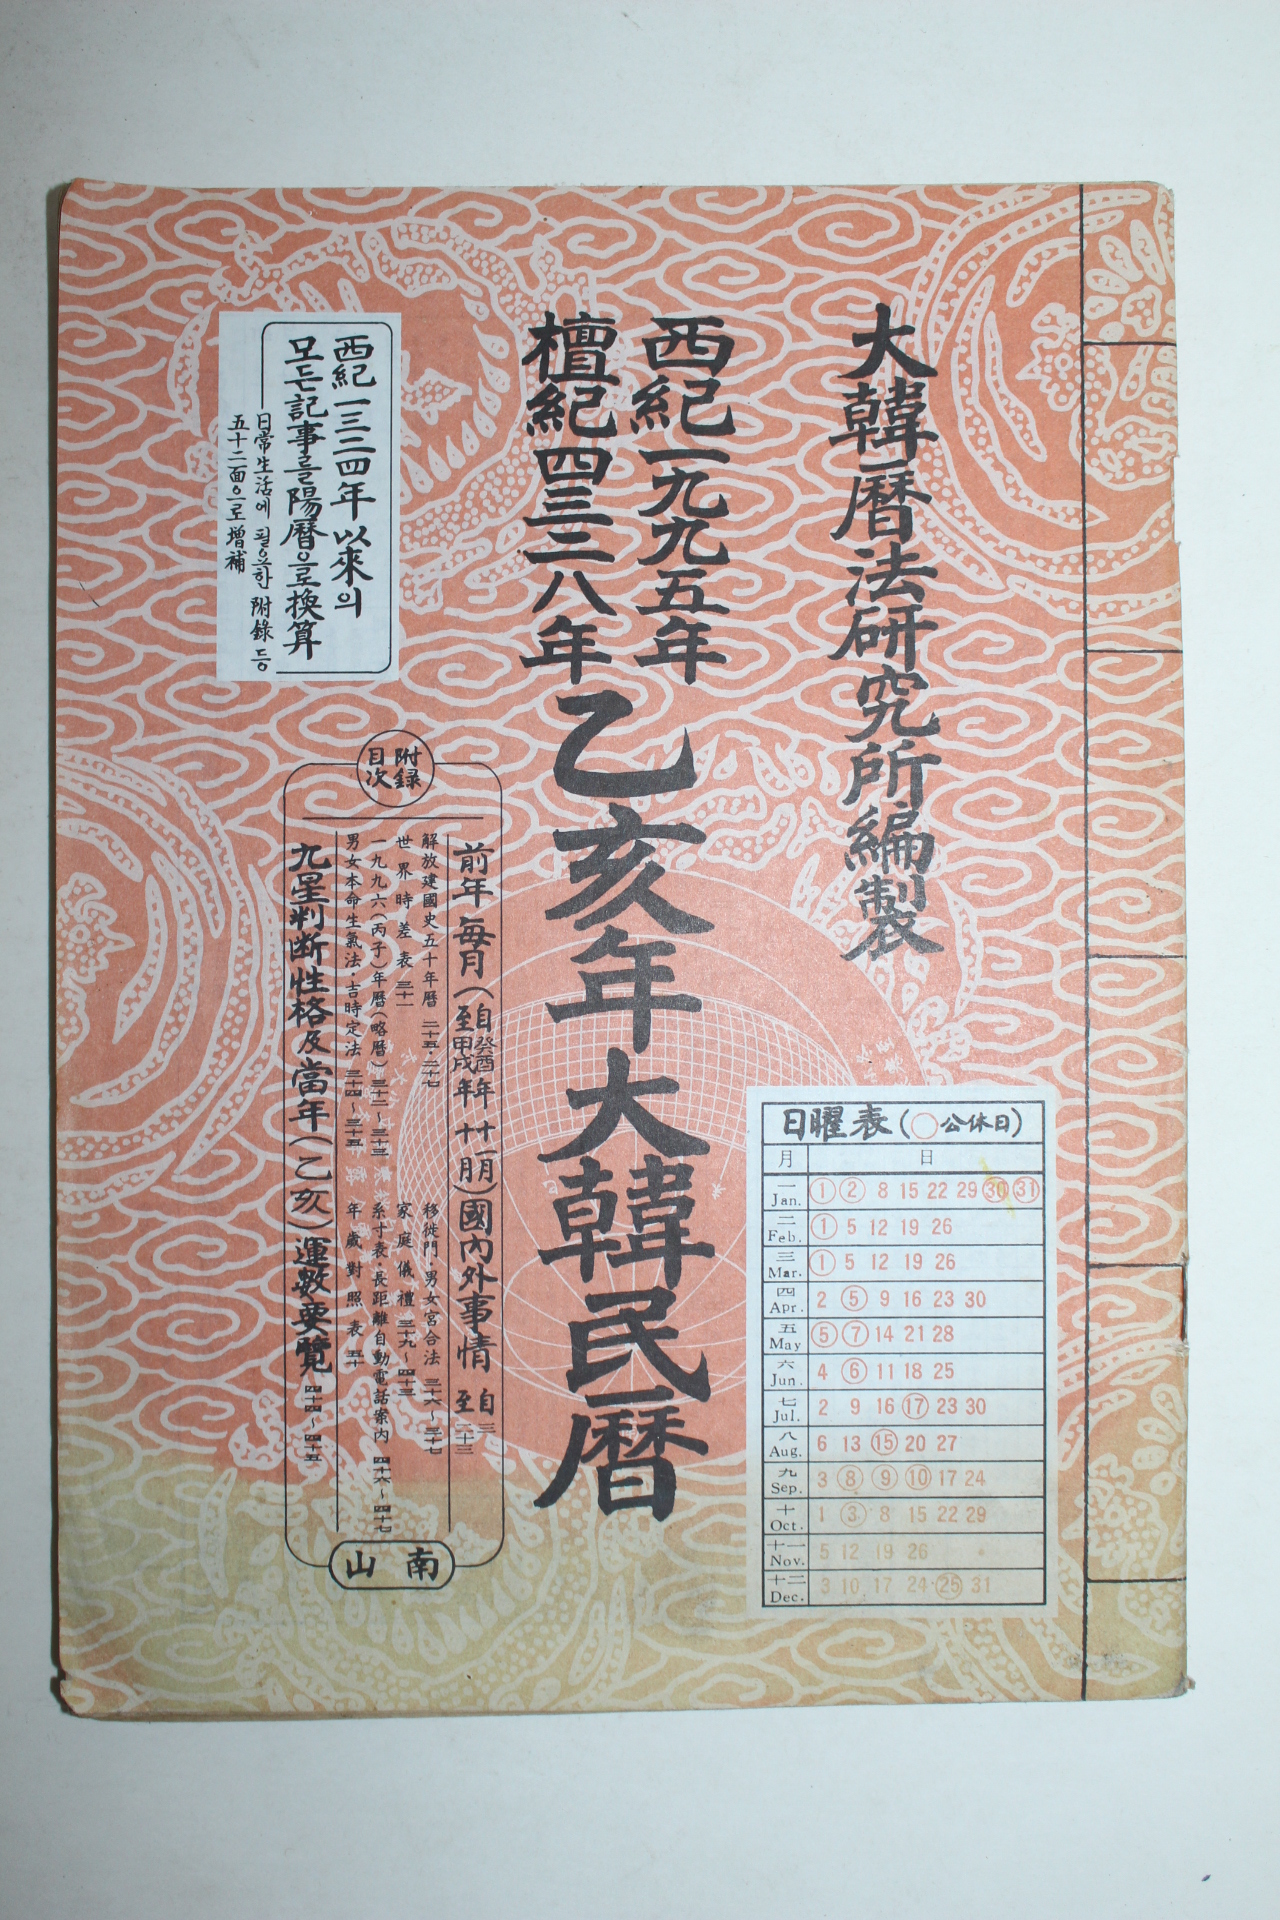 大韓曆法硏究所編製
西紀一九九五年
檀紀四三二八年
乙亥年大韓民曆
西紀一三二四年以來의
모든記事를陽曆으로換算
日常生活에 필요한 附錄 등
五十二面으로 增補
附錄
目次
前年每月(自癸酉年十一月 至甲戌年十月)國內外事情 自三 至二十三
解放建國史五十年曆 二十五·二十七
移徙門·男女宮合法 三十六～三十七
世界時差表 三十一
家庭儀禮 三十九～四十三
一九九六(丙子)年曆(略曆) 三十二～三十三
系寸表·長距離自動電話案內 四十六～四十七
男女本命生氣法·吉時定法 三十四～三十五
年歲對照表 五十
九星判斷性格及當年(乙亥)運數要覽 四十四～四十五
南山
日曜表(○公休日)
月 日
一 Jan. 1 2 8 15 22 29 30 31
二 Feb. 1 5 12 19 26
三 Mar. 1 5 12 19 26
四 Apr. 2 5 9 16 23 30
五 May 5 7 14 21 28
六 Jun. 4 6 11 18 25
七 Jul. 2 9 16 17 23 30
八 Aug. 6 13 15 20 27
九 Sep. 3 8 9 10 17 24
十 Oct. 1 3 8 15 22 29
十一 Nov. 5 12 19 26
十二 Dec. 3 10 17 24 25 31